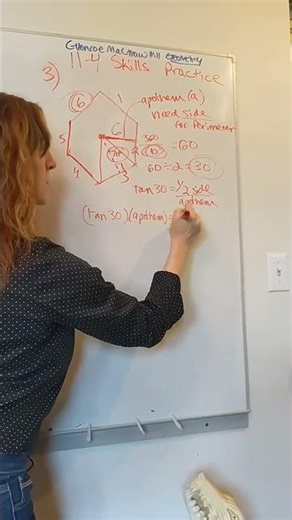 Glencoe MacGraw Mill Geometry
11-4 Skills
3) Practice
6 1 apothem (a)
need side
for Perimeter
6 360
5 2 6 = 60
4 3
60 ÷ 2 = 30
tan 30 = 1/2 side
apothem
(tan 30)(apothem) =